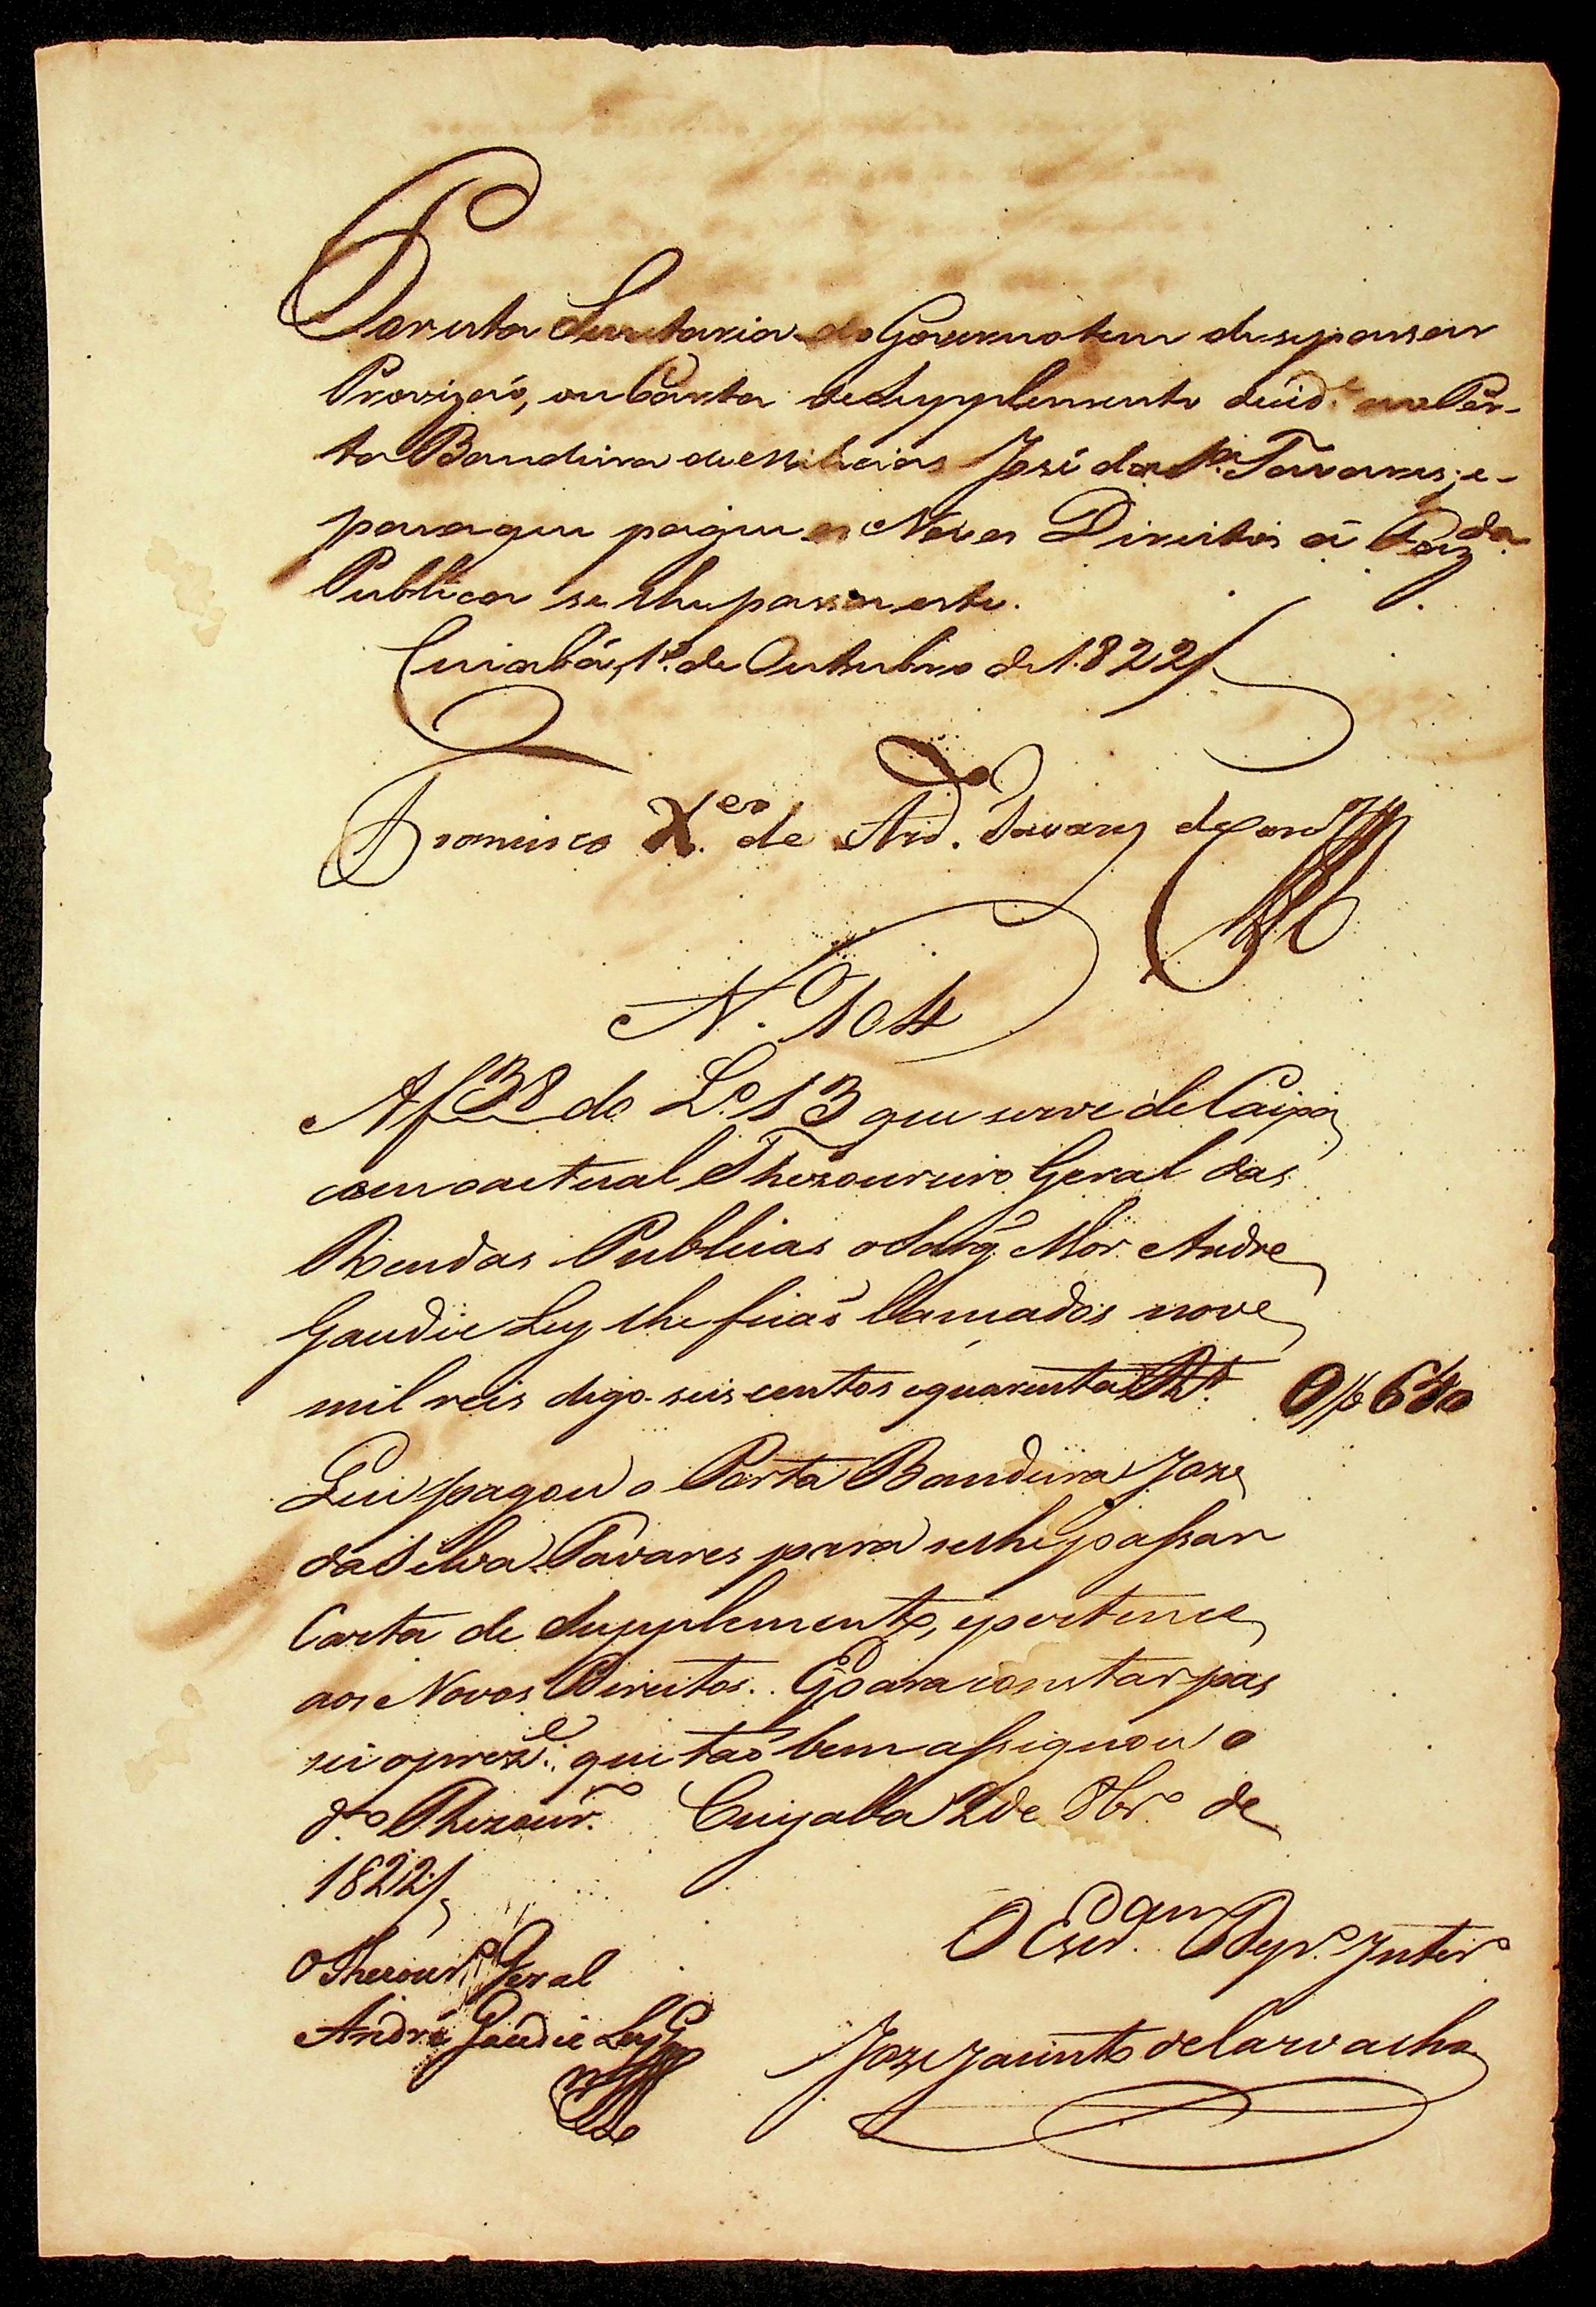 Por esta Secretaria do Governo tem de se passar
Provizaõ, ou Carta de Supplemento de id.e ao Por-
ta Bandeira de Milicias José da S.a Tavares; e
para que pague os Novos Direitos á Faz.da
Publica se lhe passa este.
Cuiabá, 1º de Outubro de 1822
Francisco X.er de And.
N. 104
A f 38 do L.o 13 que serve de Caixa
com o actual Thezoureiro Geral das
Rendas Publicas o Sarg.to Mór Andre
Gaudie Ley lhe ficaõ lançados nove
mil reis digo seis centos e quarenta R.s 0//$640
Que pagou o Porta Bandeira Joze
da Silva Tavares para se lhe passar
Carta de Supplemento, e pertence
aos Novos Direitos. E para constar pas
sei o prez.e que taõ bem assignou o
d.o Thezour.o Cuyaba 2 de 8br.o de
1822
O Escr.am Dep. Inter.o
O Thezour.o Geral
André Gaudie Ley
Joze Jacinto de Carvalho